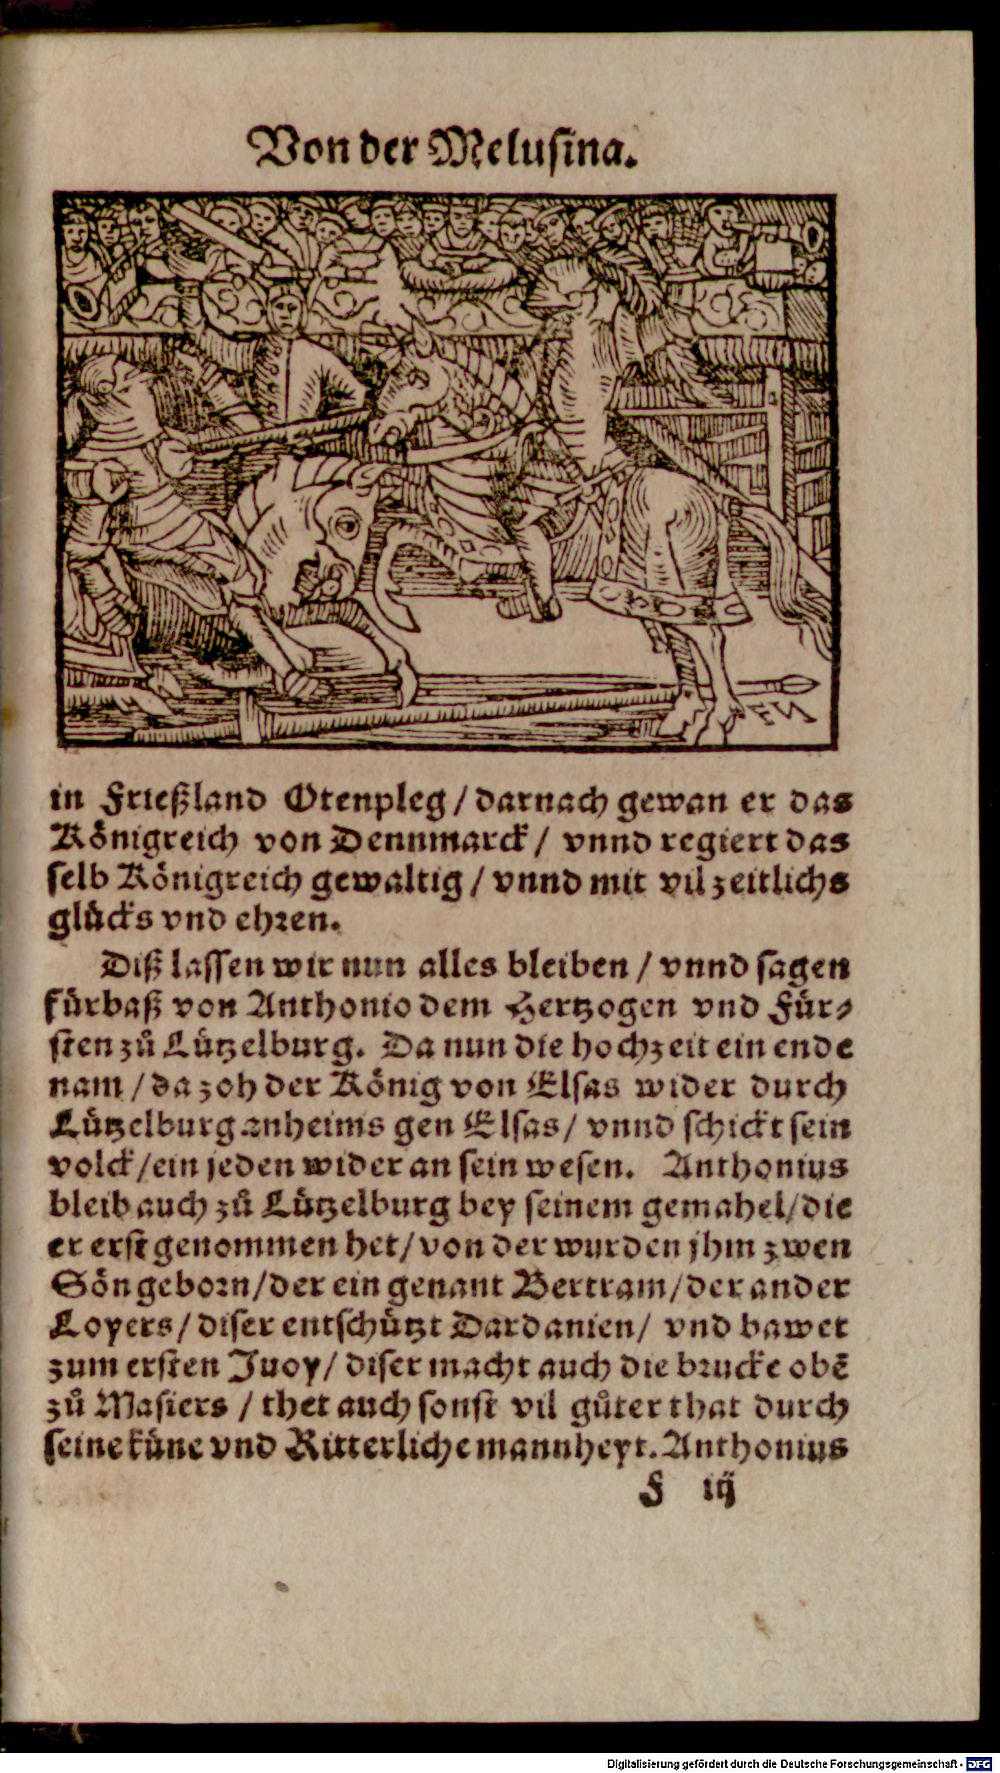 Von der Melusina.
in Frießland Otenpleg / darnach gewan er das
Königreich von Dennmarck / vnnd regiert das
selb Königreich gewaltig / vnnd mit vil zeitlichs
glücks vnd ehren.
Diß lassen wir nun alles bleiben / vnnd sagen
fürbaß von Anthonio dem Hertzogen vnd Für⸗
sten zů Lützelburg. Da nun die hochzeit ein ende
nam / da zoh der König von Elsas wider durch
Lützelburg anheims gen Elsas / vnnd schickt sein
volck / ein jeden wider an sein wesen. Anthonius
bleib auch zů Lützelburg bey seinem gemahel / die
er erst genommen het / von der wurden jhm zwen
Sön geborn / der ein genant Bertram / der ander
Loyers / diser entschützt Dardanien / vnd bawet
zum ersten Juoy / diser macht auch die brucke obẽ
zů Masiers / thet auch sonst vil gůter that durch
seine küne vnd Ritterliche mannheyt. Anthonius
F iij
Digitalisierung gefördert durch die Deutsche Forschungsgemeinschaft - DFG